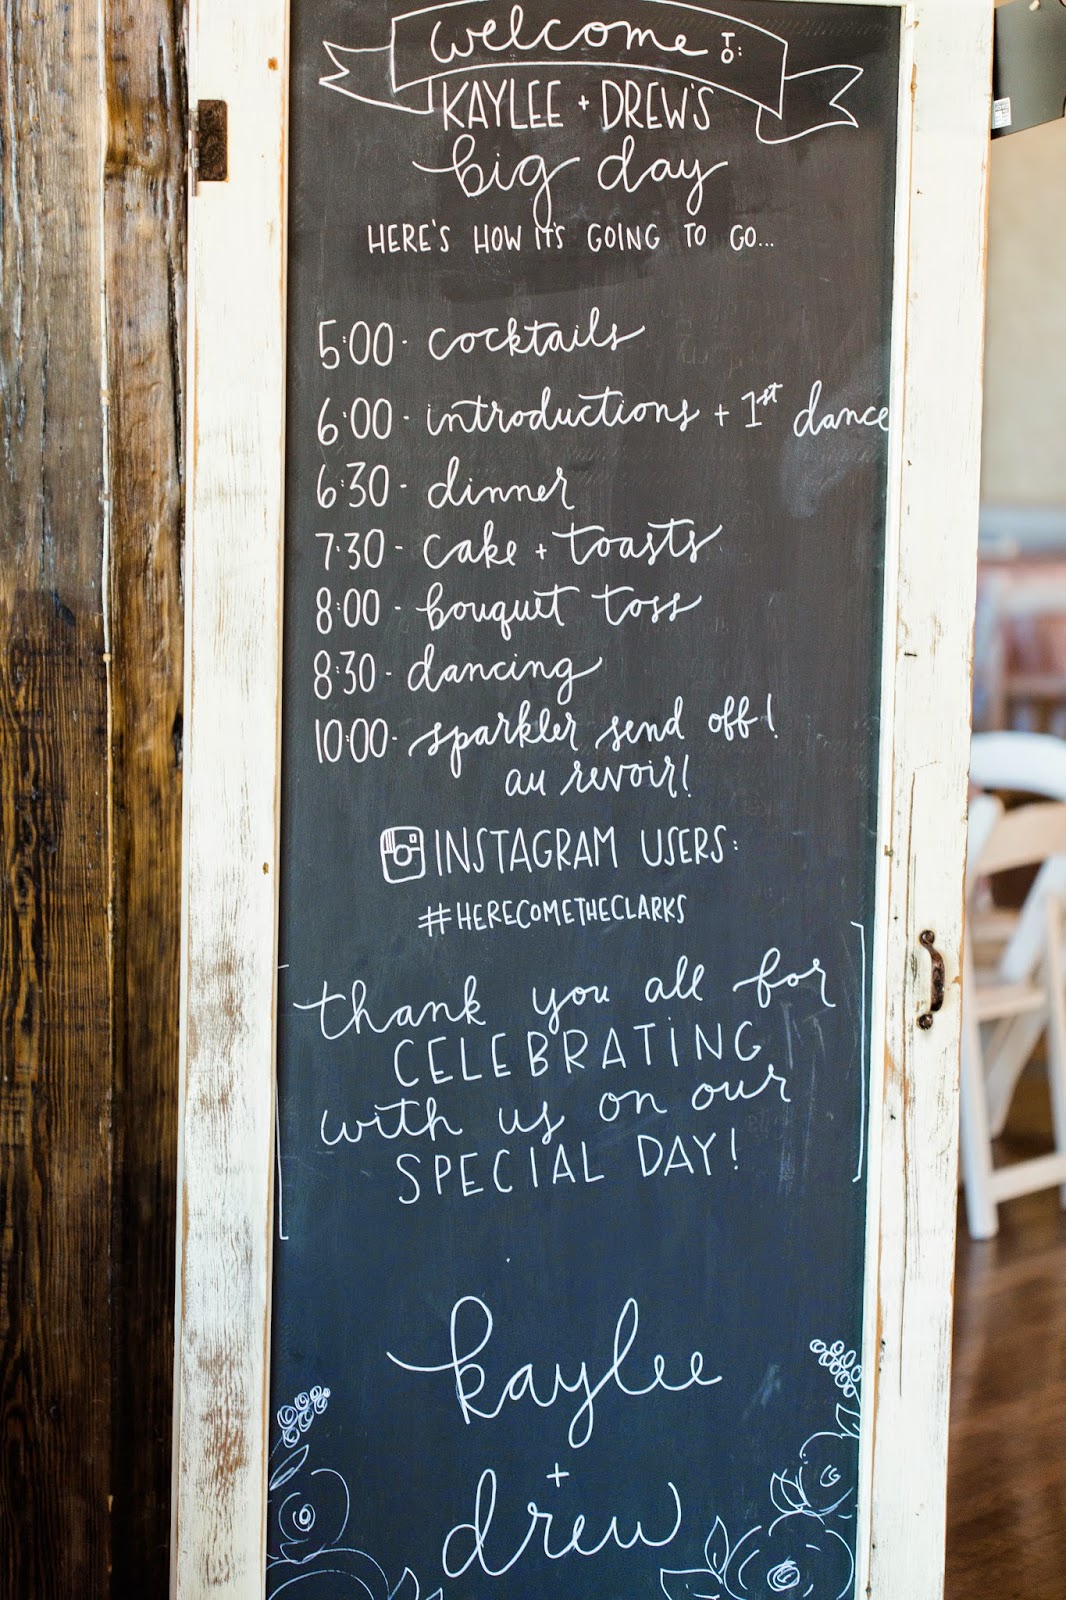 welcome TO:
KAYLEE + DREW'S
big day
HERE'S HOW IT'S GOING TO GO...
5:00 - cocktails
6:00 - introductions + 1st dance
6:30 - dinner
7:30 - cake + toasts
8:00 - bouquet toss
8:30 - dancing
10:00 - sparkler send off!
au revoir!
INSTAGRAM USERS:
#HERECOMETHECLARKS
thank you all for
CELEBRATING
with us on our
SPECIAL DAY!
kaylee
+
drew